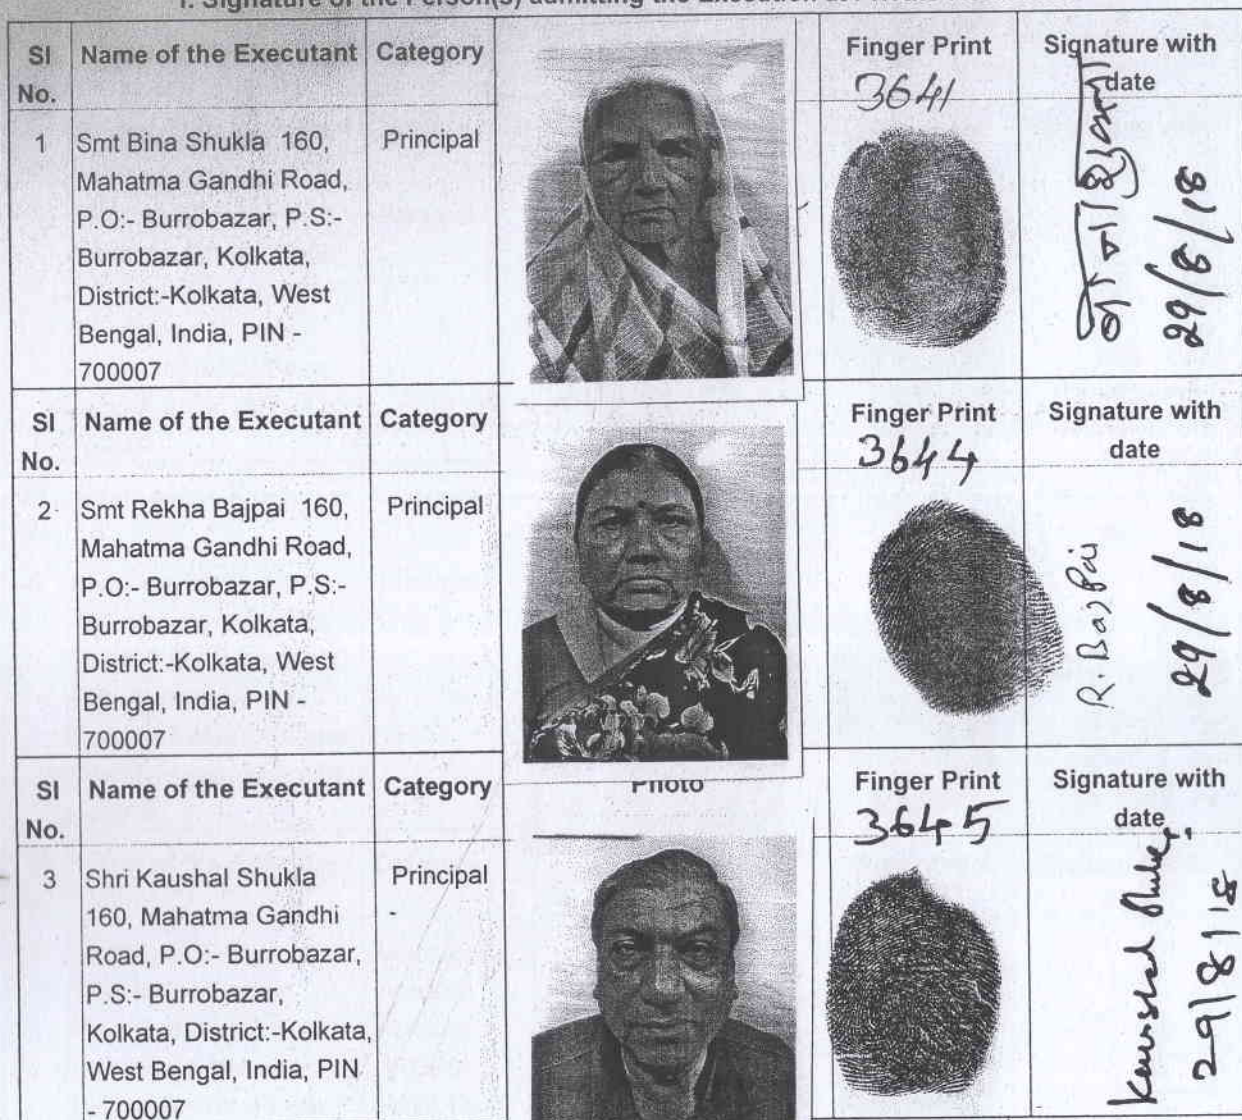 I. Signature of the Person(s) admitting the Execution at
Sl No. Name of the Executant Category Finger Print Signature with date
3641
1 Smt Bina Shukla 160, Principal
Mahatma Gandhi Road,
P.O:- Burrobazar, P.S:-
Burrobazar, Kolkata,
District:-Kolkata, West
Bengal, India, PIN -
700007
29/8/18
Sl No. Name of the Executant Category Finger Print Signature with date
3644
2 Smt Rekha Bajpai 160, Principal
Mahatma Gandhi Road,
P.O:- Burrobazar, P.S:-
Burrobazar, Kolkata,
District:-Kolkata, West
Bengal, India, PIN -
700007
R. Bajpai
29/8/18
Sl No. Name of the Executant Category Photo Finger Print Signature with date
3645
3 Shri Kaushal Shukla Principal
160, Mahatma Gandhi -
Road, P.O:- Burrobazar,
P.S:- Burrobazar,
Kolkata, District:-Kolkata,
West Bengal, India, PIN
- 700007
Kaushal
29/8/18